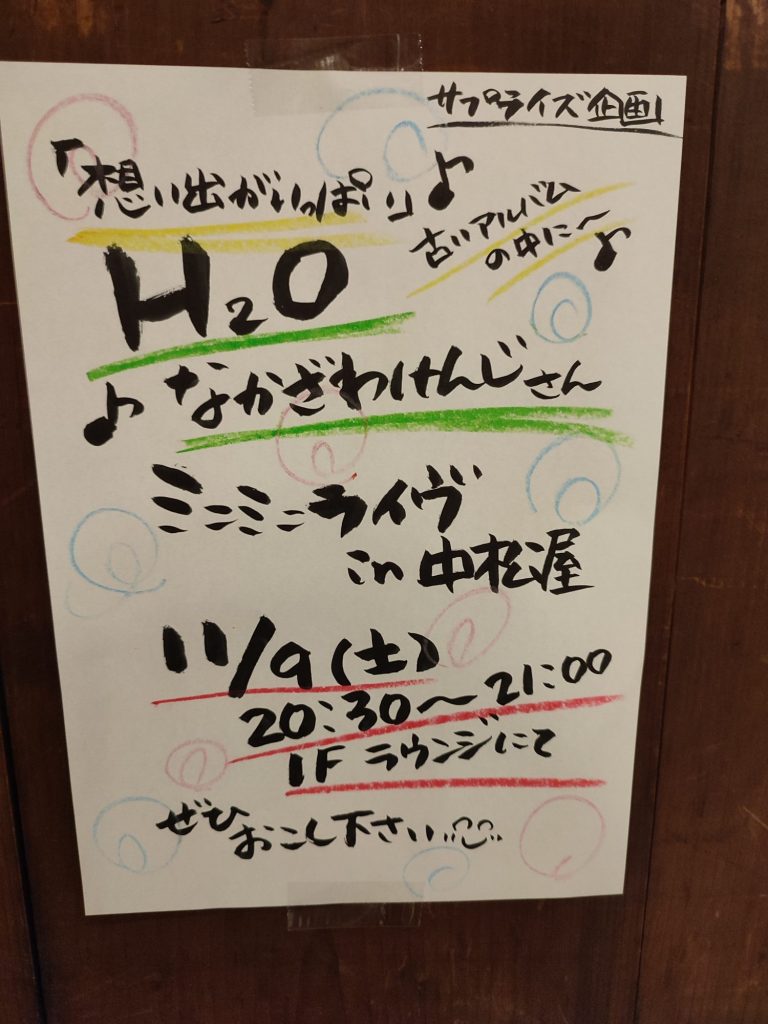 サプライズ企画!
「想い出がいっぱい」♪
古いアルバム
の中に〜♪
H₂O
♪ なかざわけんじさん
ミニミニライヴ
in 中松屋
11/9(土)
20:30〜21:00
1F ラウンジにて
ぜひ
おこし下さい